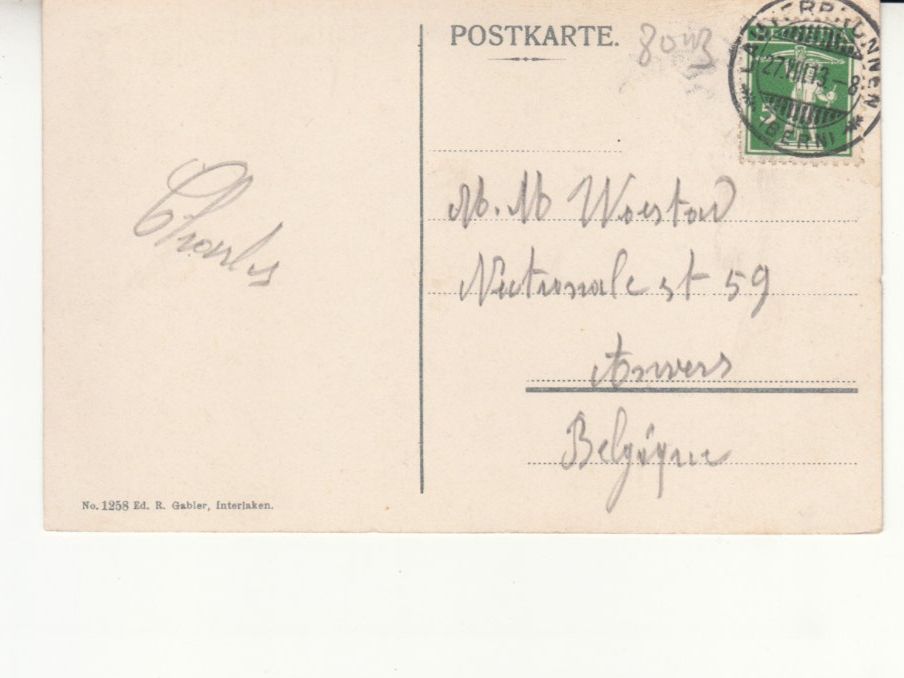 POSTKARTE.
LAUTERBRUNNEN
27.VII.13.-8
(BERN)
Charles
M. M Woestad
Nationale st 59
Anvers
Belgique
No. 1258 Ed. R. Gabler, Interlaken.